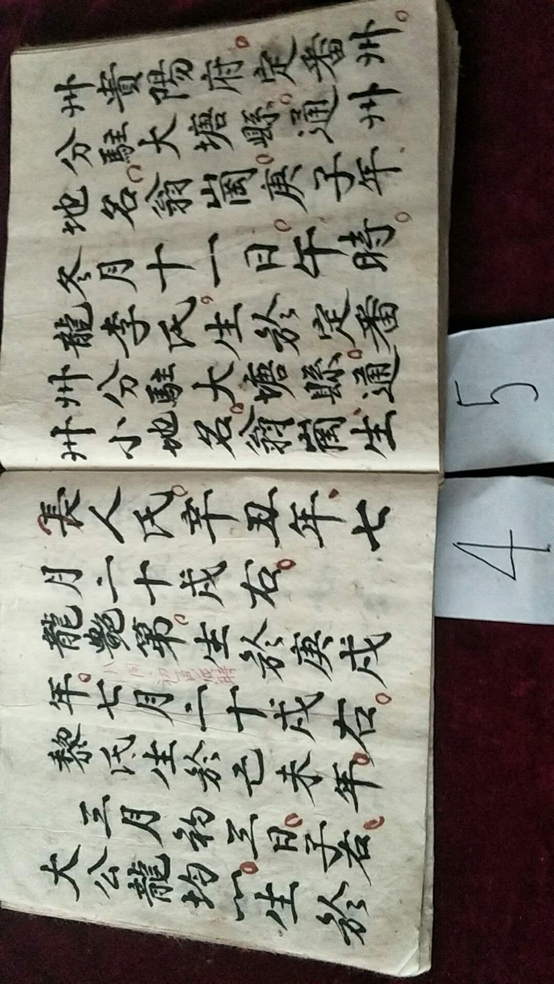 州貴陽府定番州
分駐大塘縣通州
地名翁崗庚子年
冬月十一日午時
龍李氏生於定番
州分駐大塘縣通
州小地名翁崗生
長人氏辛丑年七
月二十戌右
龍艷第生於庚戌
年七月二十戌右
黎氏生於己未年
三月初三日子右
大公龍均一生於
5
4